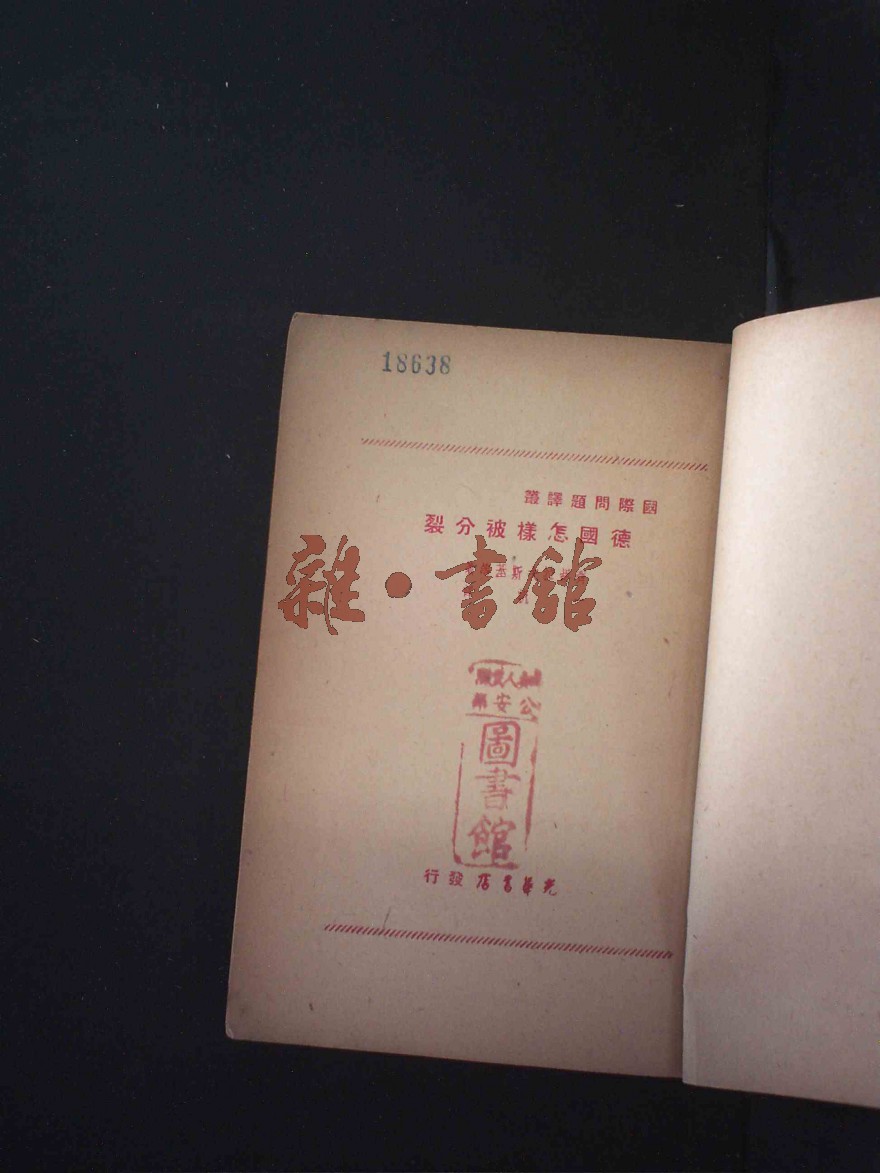 18638
國際問題譯叢
德國怎樣被分裂
斯基
雜·書館
公安
圖書館
光華書店發行